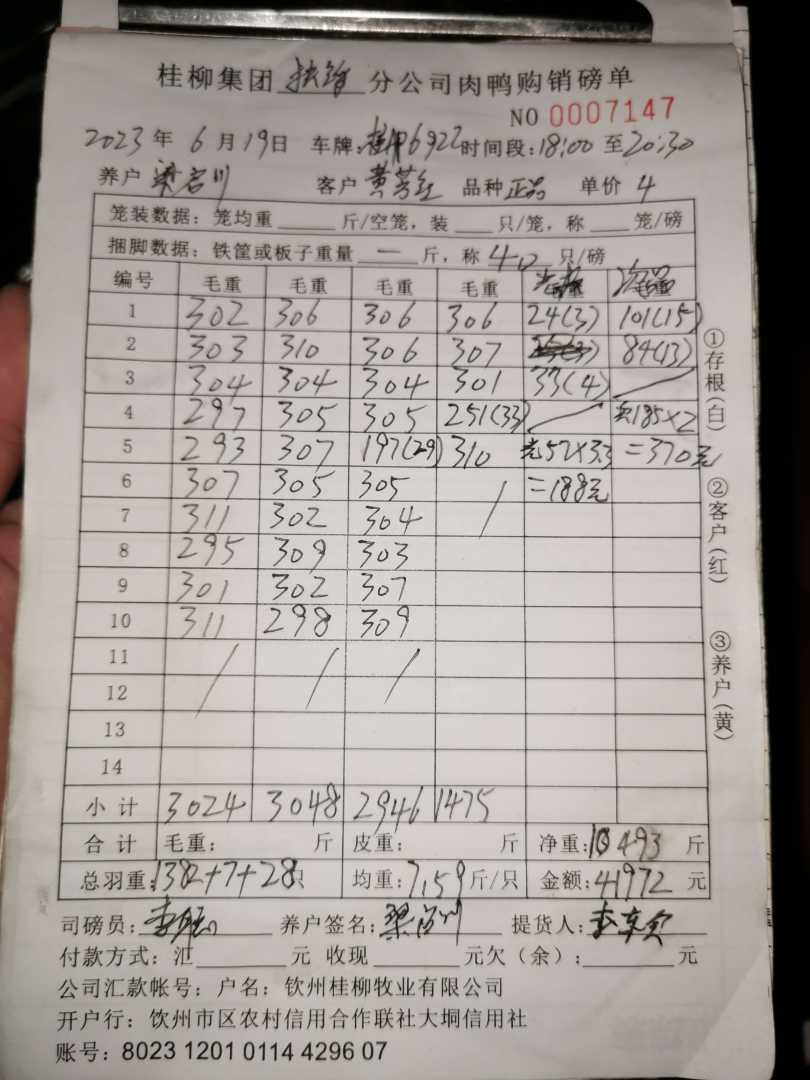 桂柳集团 分公司肉鸭购销磅单
NO 0007147
2023 年 6 月 19 日 车牌: 6922 时间段:18:00 至 20:30
养户 客户 黄芳红 品种 正品 单价 4
笼装数据：笼均重 斤/空笼，装 只/笼，称 笼/磅
捆脚数据：铁筐或板子重量 一 斤，称 40 只/磅
编号 毛重 毛重 毛重 毛重
1 302 306 306 306 24(3) 101(15)
2 303 310 306 307 84(13)
3 304 304 304 301 33(4)
4 297 305 305 251(33) 185×2
5 293 307 197(29) 310 57×3.3 =370元
6 307 305 305 =188元
7 311 302 304
8 295 309 303
9 301 302 307
10 311 298 309
11
12
13
14
小计 3024 3048 2946 1475
合计 毛重: 斤 皮重: 斤 净重:10493 斤
总羽重:1382+7+28只 均重:7.59斤/只 金额:41972 元
司磅员: 养户签名: 提货人:
付款方式：汇 元 收现 元欠（余）: 元
公司汇款帐号：户名：钦州桂柳牧业有限公司
开户行：饮州市区农村信用合作联社大垌信用社
账号：8023 1201 0114 4296 07
①存根(白)
②客户(红)
③养户(黄)